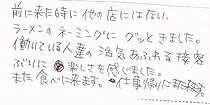 前に来た時に他の店にはない、
ラーメンのネーミングにグッときました。
働いている人達の活気あふれる接客
ぶりに楽しさを感じました。
また食べに来ます。仕事帰りに